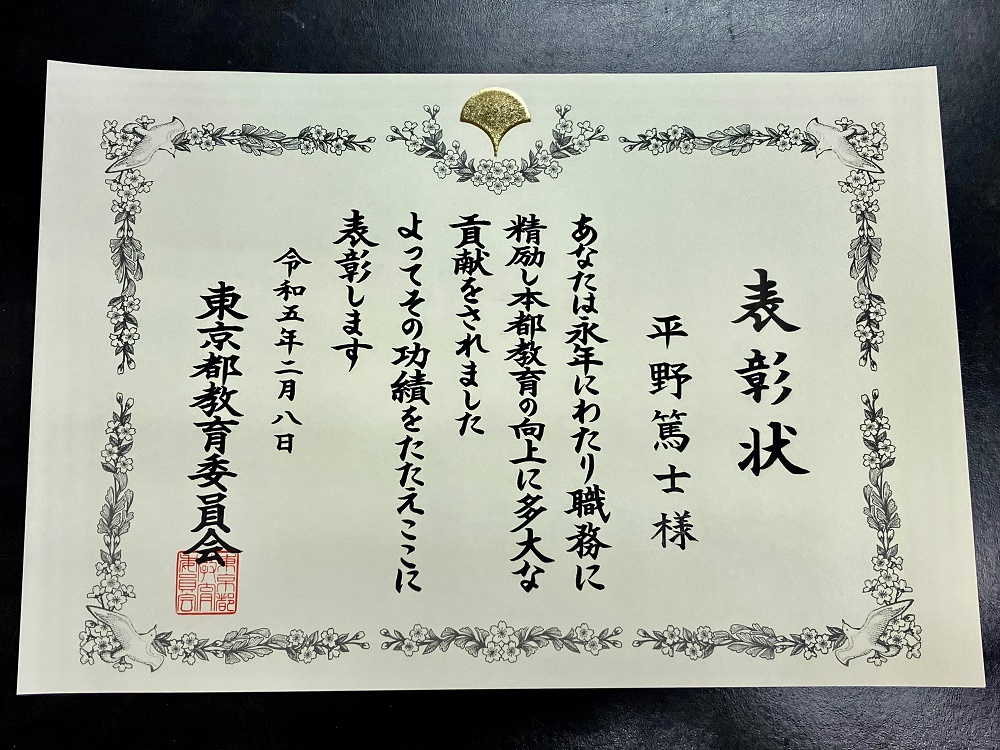 表彰状
平野篤士様
あなたは永年にわたり職務に
精励し本都教育の向上に多大な
貢献をされました
よってその功績をたたえここに
表彰します
令和五年二月八日
東京都教育委員会
東京都
教育
委員会